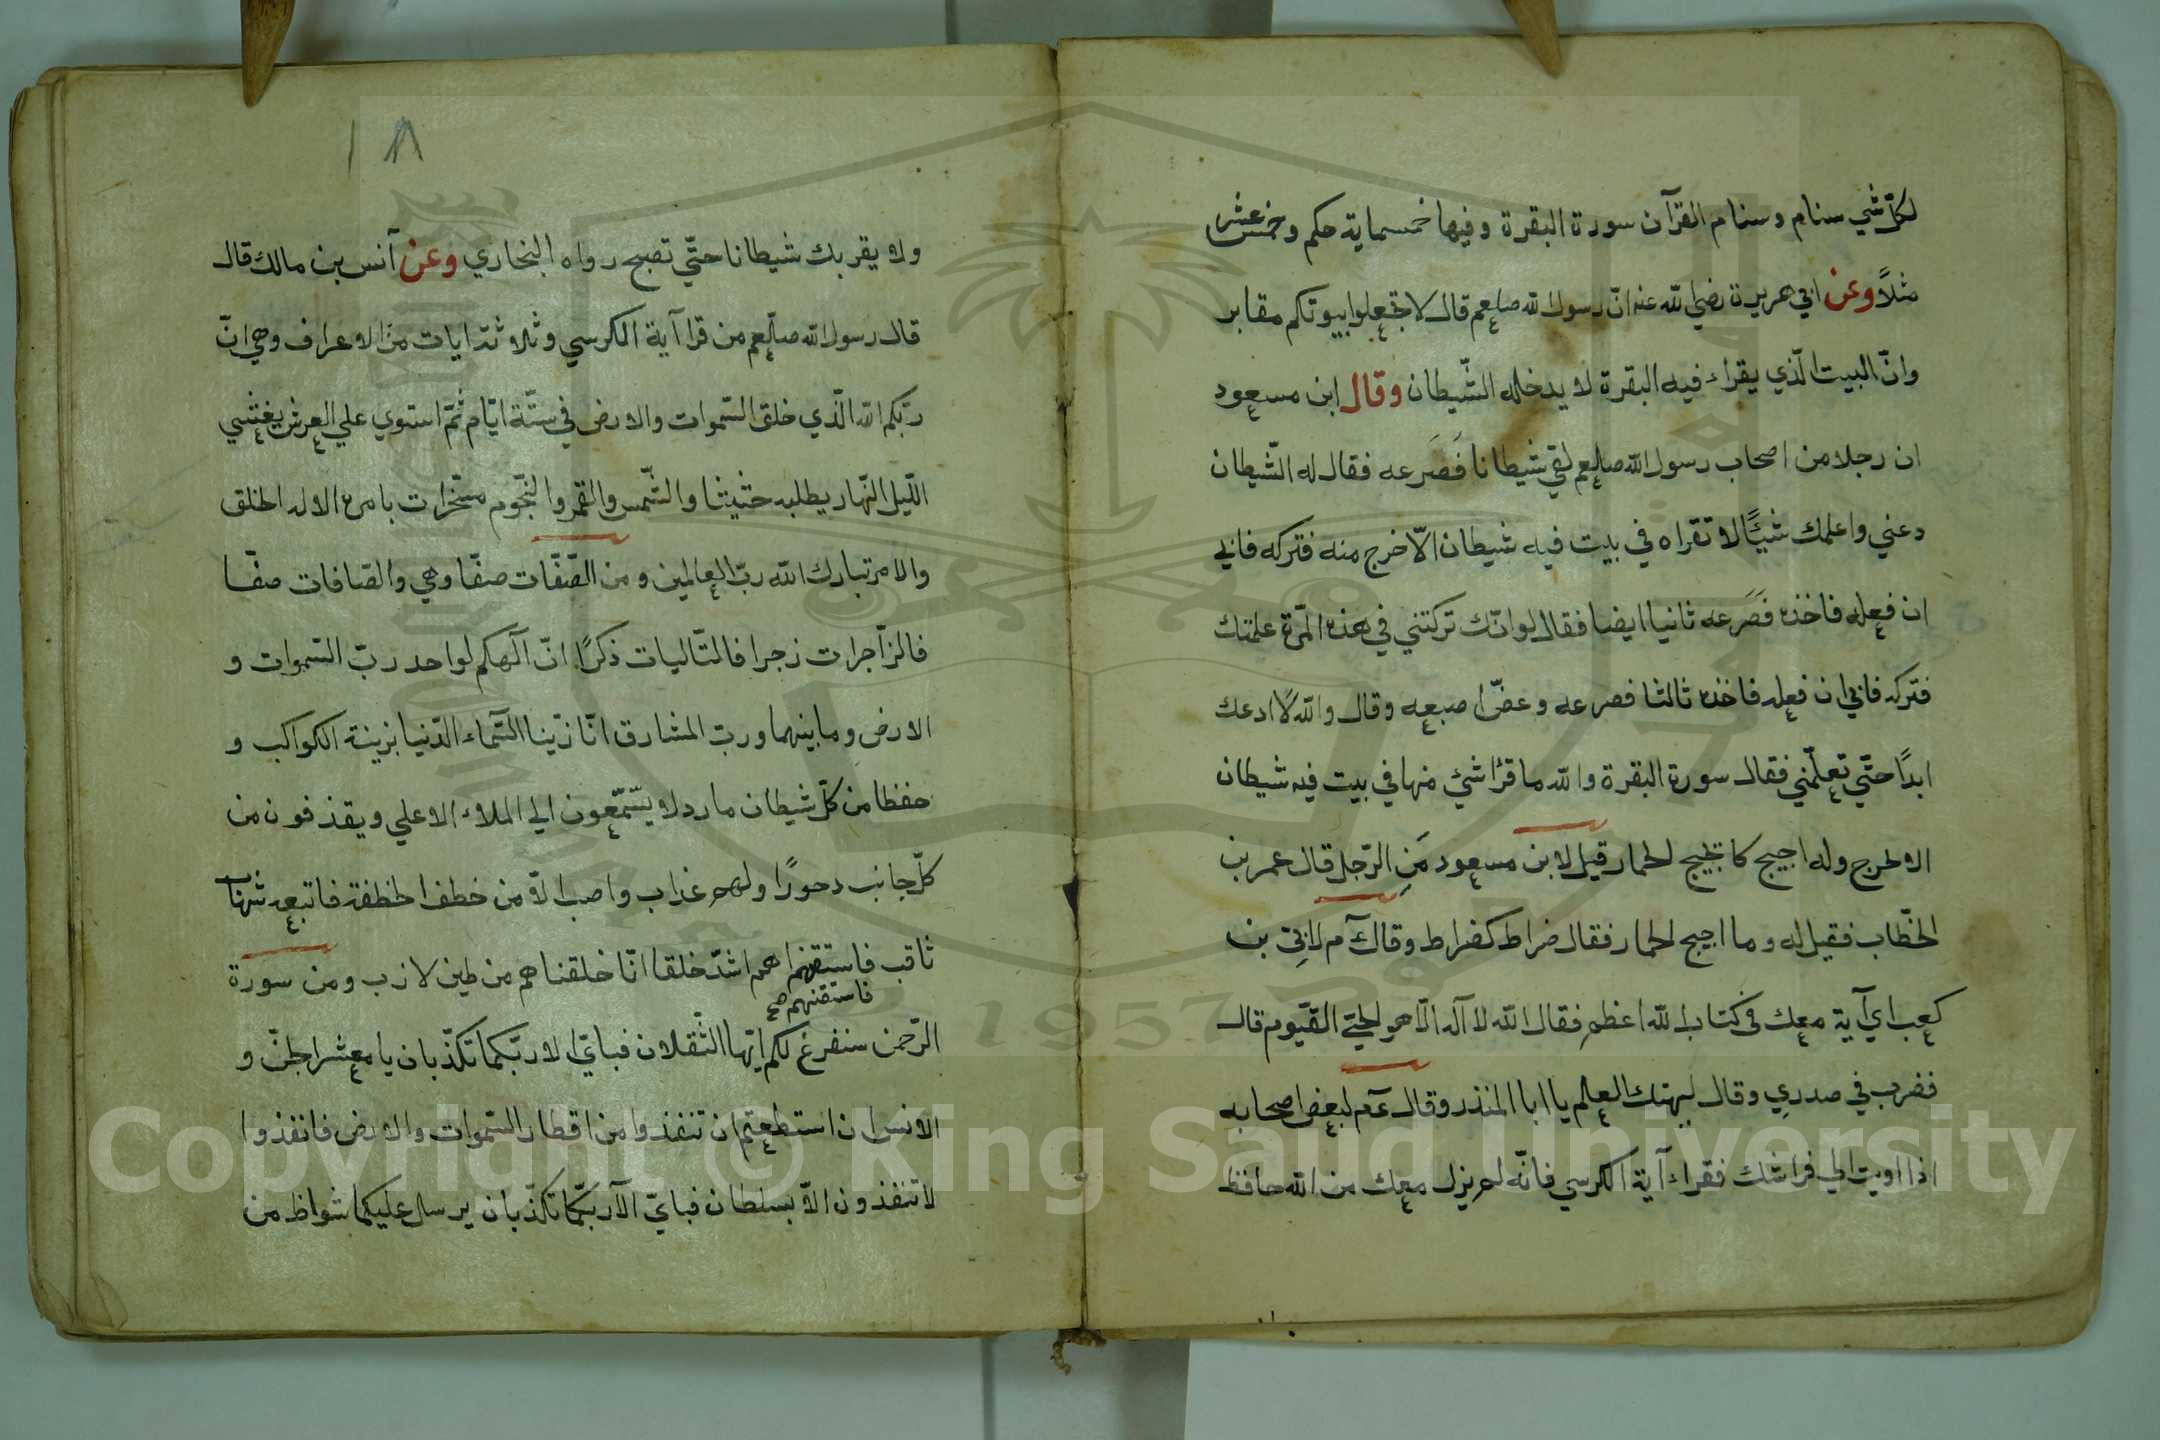 لكلّ شي سنام وسنام القرآن سورة البقرة وفيها خمسماية حكم وخمس عشر
مثلاً وعن ابي هريرة رضي الله عنه انّ رسول الله صلعم قال لا تجعلوا بيوتكم مقابر
وانّ البيت الّذي يقراء فيه البقرة لا يدخله الشّيطان وقال ابن مسعود
ان رجلا من اصحاب رسول الله صلعم لقي شيطانا فَصَرعه فقال له الشّيطان
دعني واعلمك شيئًا لا تقراه في بيت فيه شيطان الّا خرج منه فتركه فابي
ان فعله فاخذه فَصَرعه ثانيا ايضا فقال لو انّك تركتني في هذه المرّة علمتك
فتركه فابي ان فعله فاخذه ثالثا فصرعه وعضّ اصبعه وقال والله لا ادعك
ابدًا حتّي تعلّمني فقال سورة البقرة والله ما قرا شئ منها في بيت فيه شيطان
الا خرج وله اجيج كاجيج الحمار قيل لابن مسعود مَنِ الرّجل قال عمر بن
الخطّاب فقيل له وما اجيج الحمار فقال ضراط كضراط وقال عٓم لابي بن
كعب اي آية معك في كتاب الله اعظم فقال الله لا آله الّا هو الحيّ القيّوم قال
فضرب في صدري وقال ليهنك العلم يا ابا المنذر وقال عٓم لبعض اصحابه
اذا اويت الي فراشك فقراء آية الكرسي فانّه لم يزل معك من الله حافظ
١٨
ولا يقربك شيطانا حتّي تصبح رواه البخاري وعن آنس بن مالك قال
قال رسول الله صلّعم من قرا آية الكرسي وثلاثة ايات من الاعراف وهي انّ
ربّكم الله الّذي خلق السّموات والارض في ستّة ايّام ثمّ استوي علي العرش يغشي
اللّيل النّهار يطلبه حثيثا والشّمس والقمر والنّجوم مسّخرات بامره الا له الخلق
والامر تبارك الله ربّ العالمين ومن الصّفّات صفّا وهي والصّافات صفّا
فالزّاجرات زجرا فالتّاليات ذكرًا انّ آلهكم لواحد ربّ السّموات و
الارض وما بينهما وربّ المشارق انّا زيّنا السّماء الدّنيا بزينة الكواكب و
حفظا من كلّ شيطان مارد لا يسّمّعون الي الملاء الاعلي ويقذفون من
كلّ جانب دحورًا ولهم عذاب واصب الّا من خطف الخطفة فاتبعه شهاب
ثاقب فاستقتهم اهم اشدّ خلقا انّا خلقناهم من طين لازب ومن سورة
فاستفتهم صح
الرّحمن سنفرغ لكم ايّها الثّقلان فبايّ الا ربّكما تكذّبان يا معشر الجنّ و
الانس ان استطعتم ان تنفذوا من اقطار السّموات والارض فانفذوا
لا تنفذون الّا بسلطان فبايّ الآ ربّكما تكذّبان يرسل عليكما شواظ من
Copyright © King Saud University
1957